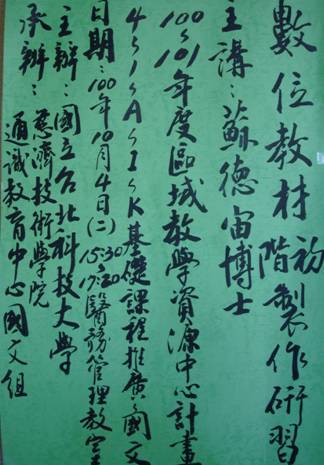 數位教材初階製作研習
主講:蘇德宙博士
100~101年度區域教學資源中心計畫
4~1~A~1~K基礎課程推廣~國文
日期:100年10月4日(二) 15:30~17:20/醫務管理教室
主辦:國立台北科技大學
承辦:慈濟技術學院
通識教育中心國文組